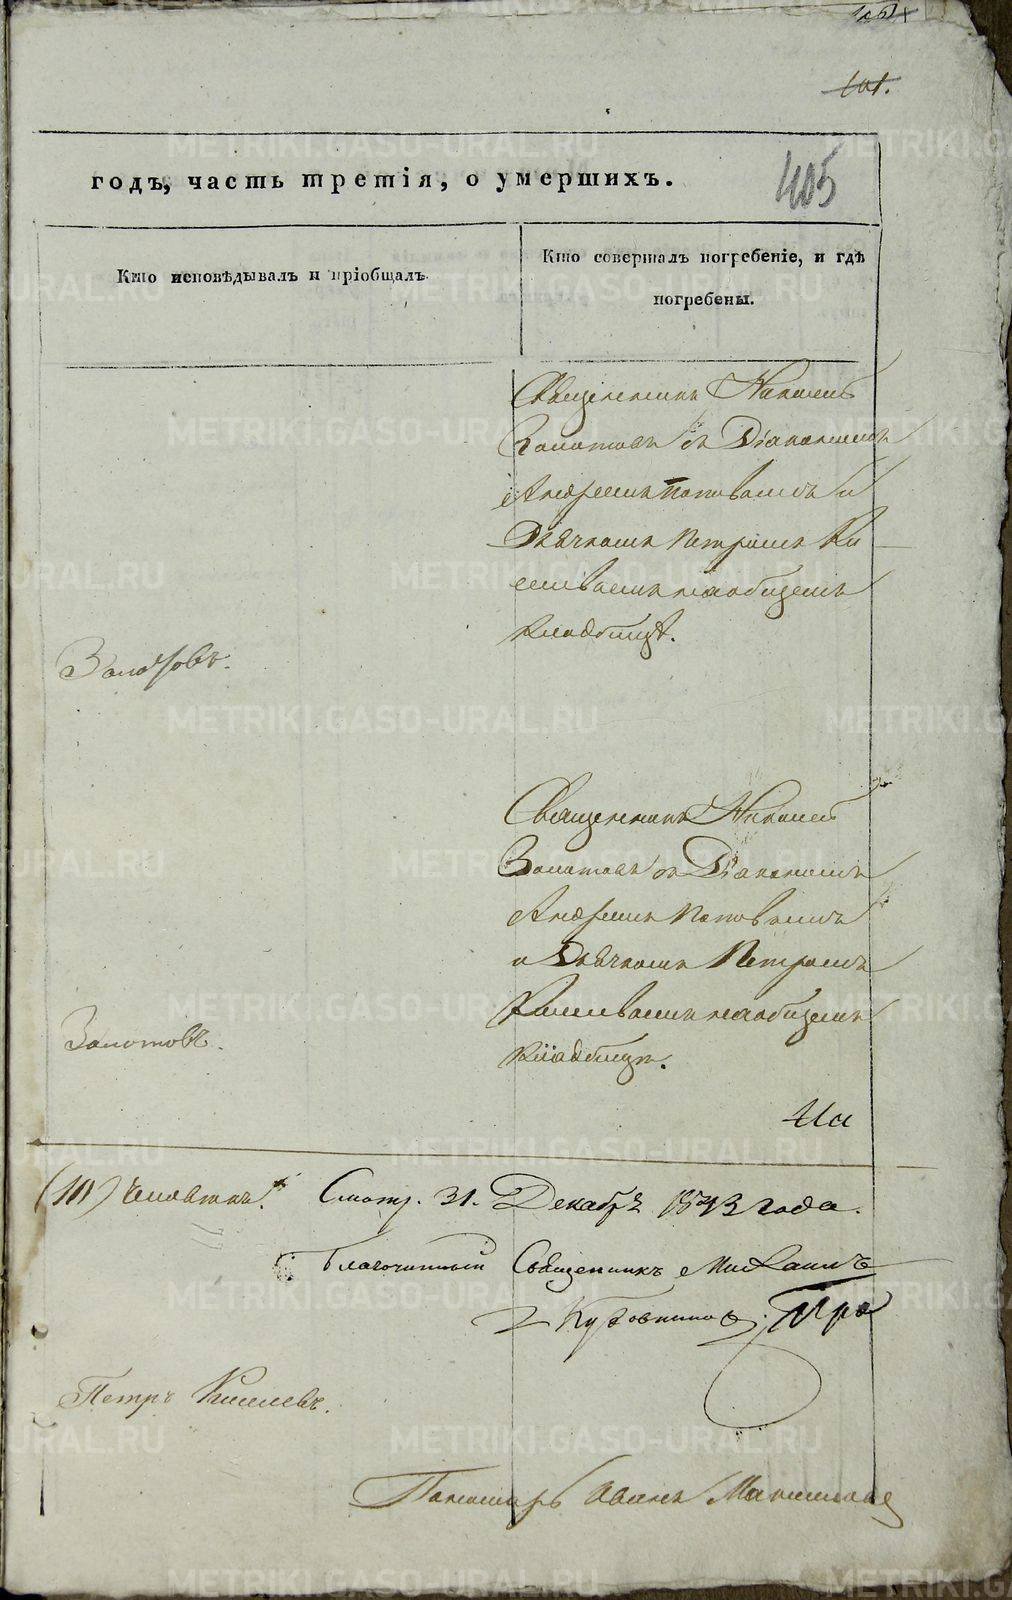 101.
405
годъ, часть третія, о умершихъ.
Кто исповѣдывалъ и пріобщалъ.
Кто совершалъ погребеніе, и гдѣ
погребены.
Священникъ Николай
Золотовъ съ Діакономъ
Андреемъ Поповымъ и
Дьячкомъ Петромъ Ки
селевымъ на общемъ
кладбищѣ.
Золотовъ.
Священникъ Николай
Золотовъ съ Діакономъ
Андреемъ Поповымъ
и Дьячкомъ Петромъ
Киселевымъ на общемъ
кладбищѣ.
Золотовъ.
(10) человѣкъ.
Смотр. 31. Декабрѣ 1843 года.
Благочинный Священникъ Михаилъ
Петръ Киселевъ.
Пономарь Иванъ
METRIKI.GASO-URAL.RU